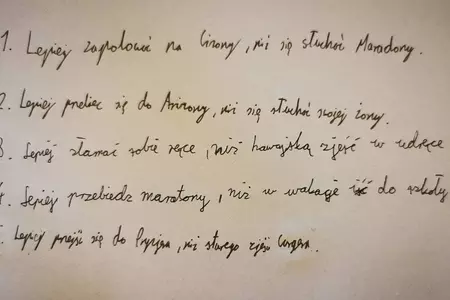 1. Lepiej zapolować na Gizony, niż się słuchać Maradony.
2. Lepiej przebiec się do Arizony, niż się słuchać swojej żony.
3. Lepiej złamać sobie ręce, niż hawajską zjeść w udręce
4. Lepiej przebiedz maratony, niż w wakacje iść do szkoły
Lepiej przejść się do Pryzjera, niż starego zjeść